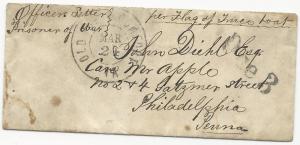 Officers Letter
Prisoner of War
per Flag of Truce boat
OLD
MAR
24
John Diehl Esq
Care Mr Apple
No 2 & 4 Tatzmer street
Philadelphia
Penna